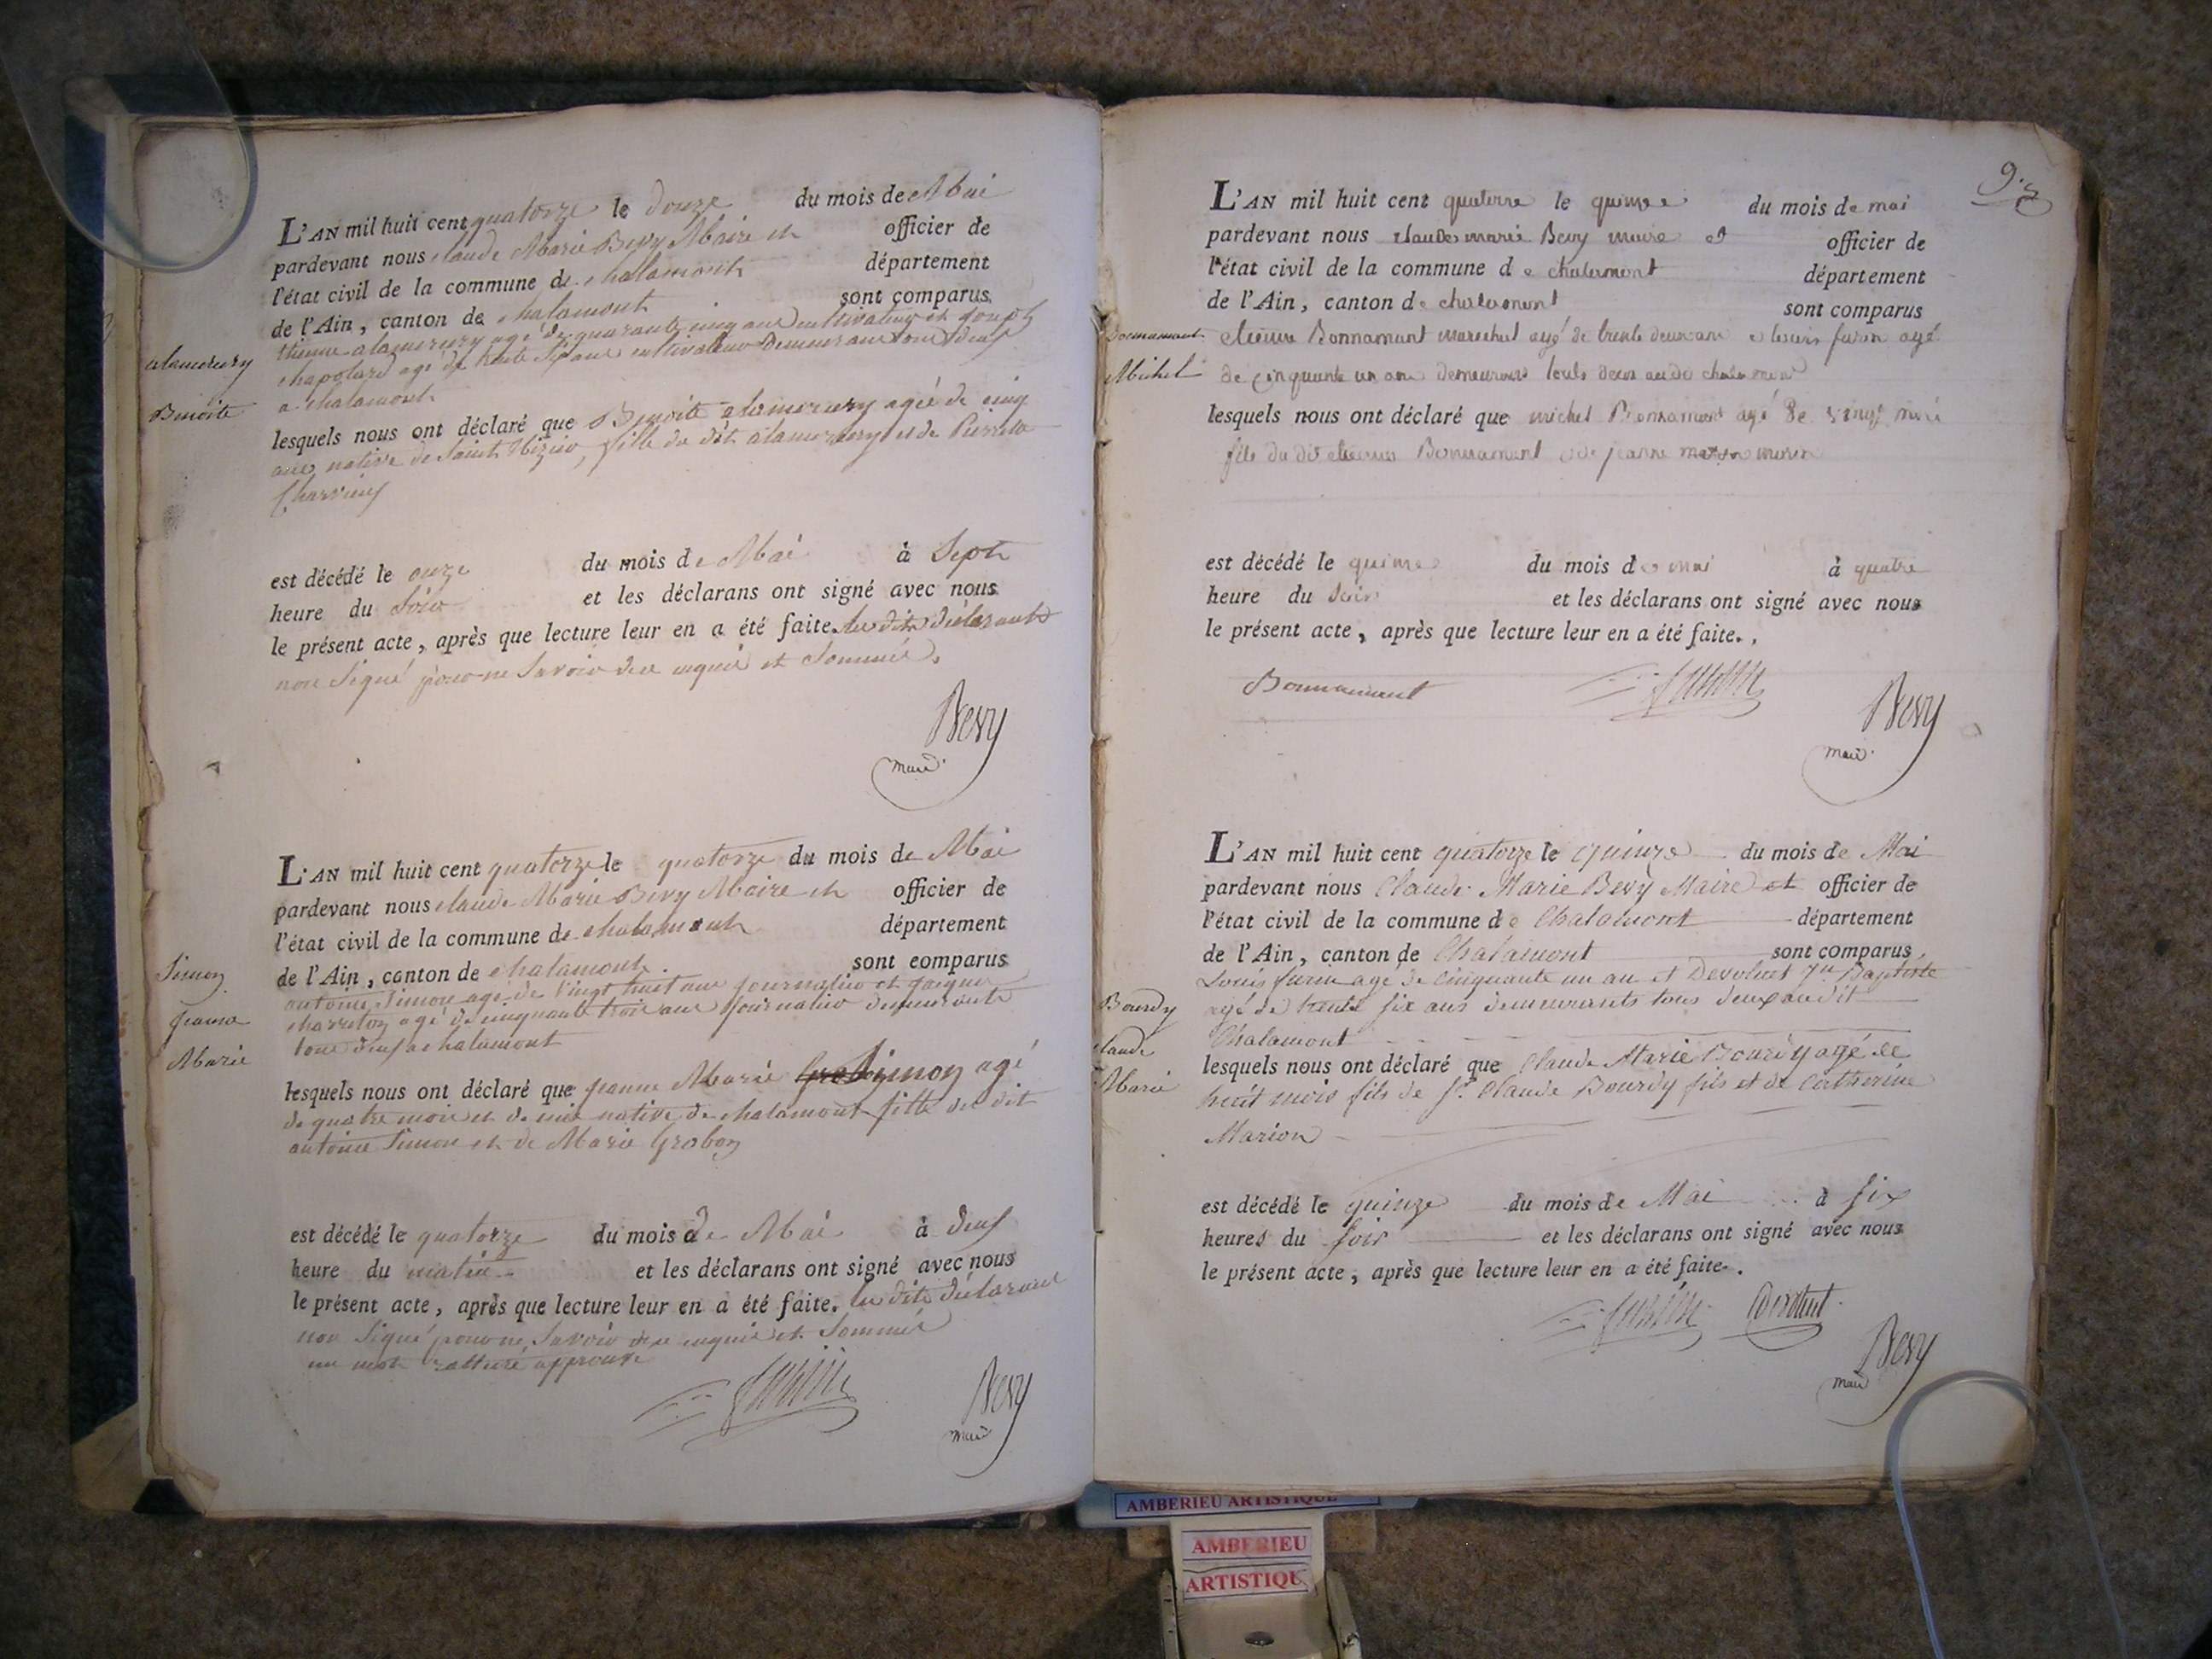 L'AN mil huit cent quatorze le douze du mois de Mai
pardevant nous claude Marie Bevy Maire et officier de
l'état civil de la commune de chalamont département
de l'Ain, canton de chalamont sont comparus
agé de quarante cinq ans cultivateur et joseph
chapolard agé de trente ans cultivateur demeurant tous deux
a chalamont
Benoite
lesquels nous ont déclaré que Benoite alamercery agée de cinq
ans native de Saint Nizier, fille du dit alamercery et de Pierrette
Charvieux
est décédé le onze du mois de Mai à Sept
heure du Soir et les déclarans ont signé avec nous
le présent acte, après que lecture leur en a été faite. les dits déclarants
non Signé pour ne Savoir de ce enquis et Sommé.
Bevy
maire
L'AN mil huit cent quatorze le quatorze du mois de Mai
pardevant nous claude Marie Bevy Maire et officier de
l'état civil de la commune de chalamont département
de l'Ain, canton de chalamont. sont comparus
Simon
Jeanne
Marie
antoine Simon agé de vingt huit ans journalier et
charreton agé de cinquante trois ans journalier demeurants
tous deux a chalamont
lesquels nous ont déclaré que jeanne Marie Simon agé
de quatre mois et demie native de chalamont fille du dit
antoine Simon et de Marie Grabon
est décédé le quatorze du mois de Mai à deux
heure du matin et les déclarans ont signé avec nous
le présent acte, après que lecture leur en a été faite. les dits déclarans
non Signé pour ne Savoir de ce enquis et Sommé
un mot ratturé approuvé
Bevy
maire
9.
L'AN mil huit cent quatorze le quinze du mois de mai
pardevant nous claude marie Bevy maire et officier de
l'état civil de la commune de chalamont département
de l'Ain, canton de chalamont sont comparus
Bonnamant
Michel
etienne Bonnamant marechal agé de trente deux ans et louis furin agé
de cinquante un ans demeurans touts deux audit chalamont
lesquels nous ont déclaré que michel Bonnamant agé de vingt mois
fils du dit etienne Bonnamant et de jeanne morin
est décédé le quinze du mois de mai à quatre
heure du Soir et les déclarans ont signé avec nous
le présent acte, après que lecture leur en a été faite.
Bonnamant
Bevy
maire
L'AN mil huit cent quatorze le quinze du mois de Mai
pardevant nous Claude Marie Bevy Maire et officier de
l'état civil de la commune de Chalamont département
de l'Ain, canton de Chalamont sont comparus
Bourdy
claude
Marie
Louis furin agé de cinquante un an et Devoluet Jn Baptiste
agé de trente six ans demeurants tous deux audit
Chalamont
lesquels nous ont déclaré que Claude Marie Bourdy agé de
huit mois fils de Sr. Claude Bourdy fils et de Catherine
Marion
est décédé le quinze du mois de Mai à six
heures du soir et les déclarans ont signé avec nous
le présent acte, après que lecture leur en a été faite.
Bevy
maire
AMBERIEU ARTISTIQUE
AMBERIEU
ARTISTIQUE